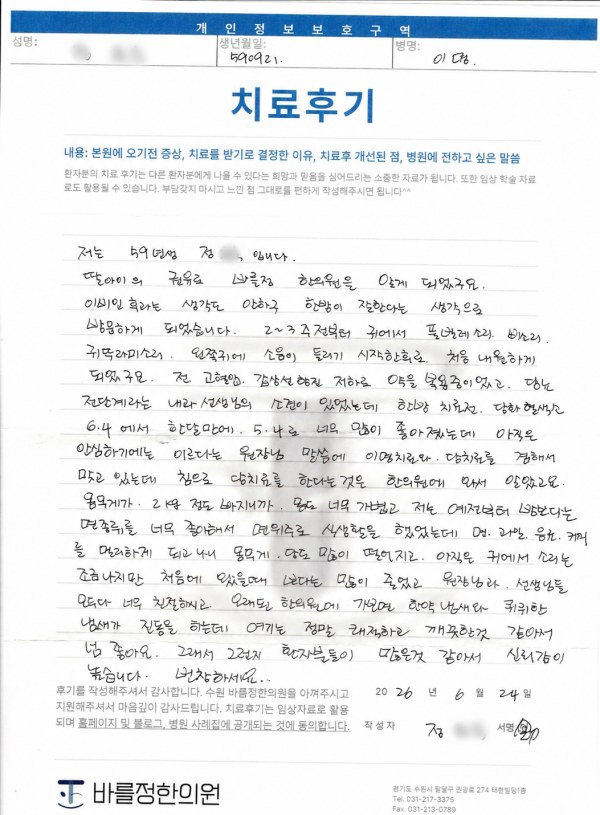 개 인 정 보 보 호 구 역
성명:
생년월일: 590921.
병명: 이명.
치료후기
내용: 본원에 오기전 증상, 치료를 받기로 결정한 이유, 치료후 개선된 점, 병원에 전하고 싶은 말씀
환자분의 치료 후기는 다른 환자분에게 나을 수 있다는 희망과 믿음을 심어드리는 소중한 자료가 됩니다. 또한 임상 학술 자료
로도 활용될 수 있습니다. 부담갖지 마시고 느낀 점 그대로를 편하게 작성해주시면 됩니다^^
저는 59년생 정 입니다.
딸아이의 권유로 바를정 한의원을 알게 되었구요.
이비인후과라는 생각도 안하구 한방이 잘한다는 생각으로
방문하게 되었습니다. 2~3주전부터 귀에서 풀벌레소리. 삐소리.
귀뚜라미소리. 왼쪽귀에 소음이 들리기 시작한후로 처음 내원하게
되었구요. 전 고혈압. 갑상선 항진 저하로 약을 복용중이었고. 당뇨
전단계라는 내과 선생님의 소견이 있었는데 한방 치료전. 당화혈색소
6.4 에서 한달만에. 5.4로 너무 많이 좋아졌는데 아직은
안심하기에는 이르다는 원장님 말씀에 이명치료와. 당치료를 겸해서
받고 있는데 침으로 당치료를 한다는것은 한의원에 와서 알았고요.
몸무게가. 정도 빠지니까. 몸도 너무 가볍고 저는 예전부터 밥보다는
면종류를 너무 좋아해서 면위주로 식생활을 했었는데 면. 과일. 음료. 커피
를 멀리하게 되고나니 몸무게. 당도 많이 떨어지고. 아직은 귀에서 소리는
조금나지만 처음에 왔을때 보다는 많이 줄었고 원장님과. 선생님들
모두다 너무 친절하시고 오래된 한의원에 가보면 한약 냄새와 퀴퀴한
냄새가 진동을 하는데 여기는 정말 쾌적하고 깨끗한것 같아서
넘 좋아요. 그래서 그런지 환자분들이 많은것 같아서 신뢰감이
높습니다. 번창하세요..
후기를 작성해주셔서 감사합니다. 수원 바를정한의원을 아껴주시고
지원해주셔서 마음깊이 감사드립니다. 치료후기는 임상자료로 활용
되며 홈페이지 및 블로그, 병원 사례집에 공개되는 것에 동의합니다.
20 26 년 6 월 24 일
작성자 정 서명
바를정한의원
경기도 수원시 팔달구 권광로 274 태현빌딩1층
Tel. 031-217-3375
Fax. 031-213-0789